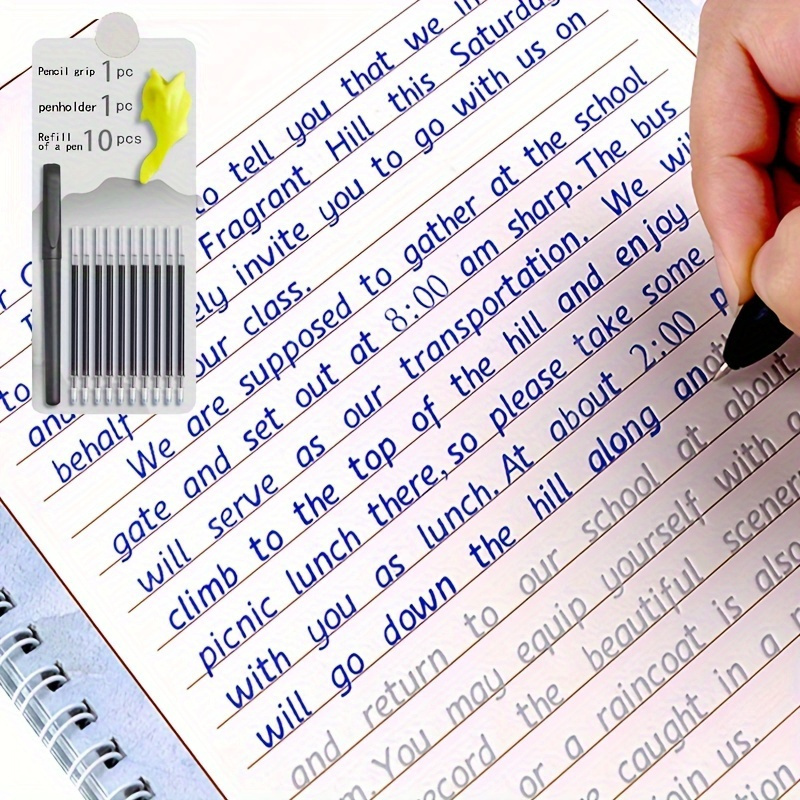 Pencil grip 1 pc
penholder 1 pc
Refill of a pen 10 pcs
to tell you that we
Fragrant Hill this Saturday
invite you to go with us on
behalf our class.
We are supposed to gather at the school
gate and set out at 8:00 am sharp. The bus
will serve as our transportation. We will
climb to the top of the hill and enjoy
picnic lunch there, so please take some
with you as lunch. At about 2:00 p
will go down the hill along another
and return to our school at about
m. You may equip yourself with a
record the beautiful scenery
or a raincoat is also
caught in a
join us.